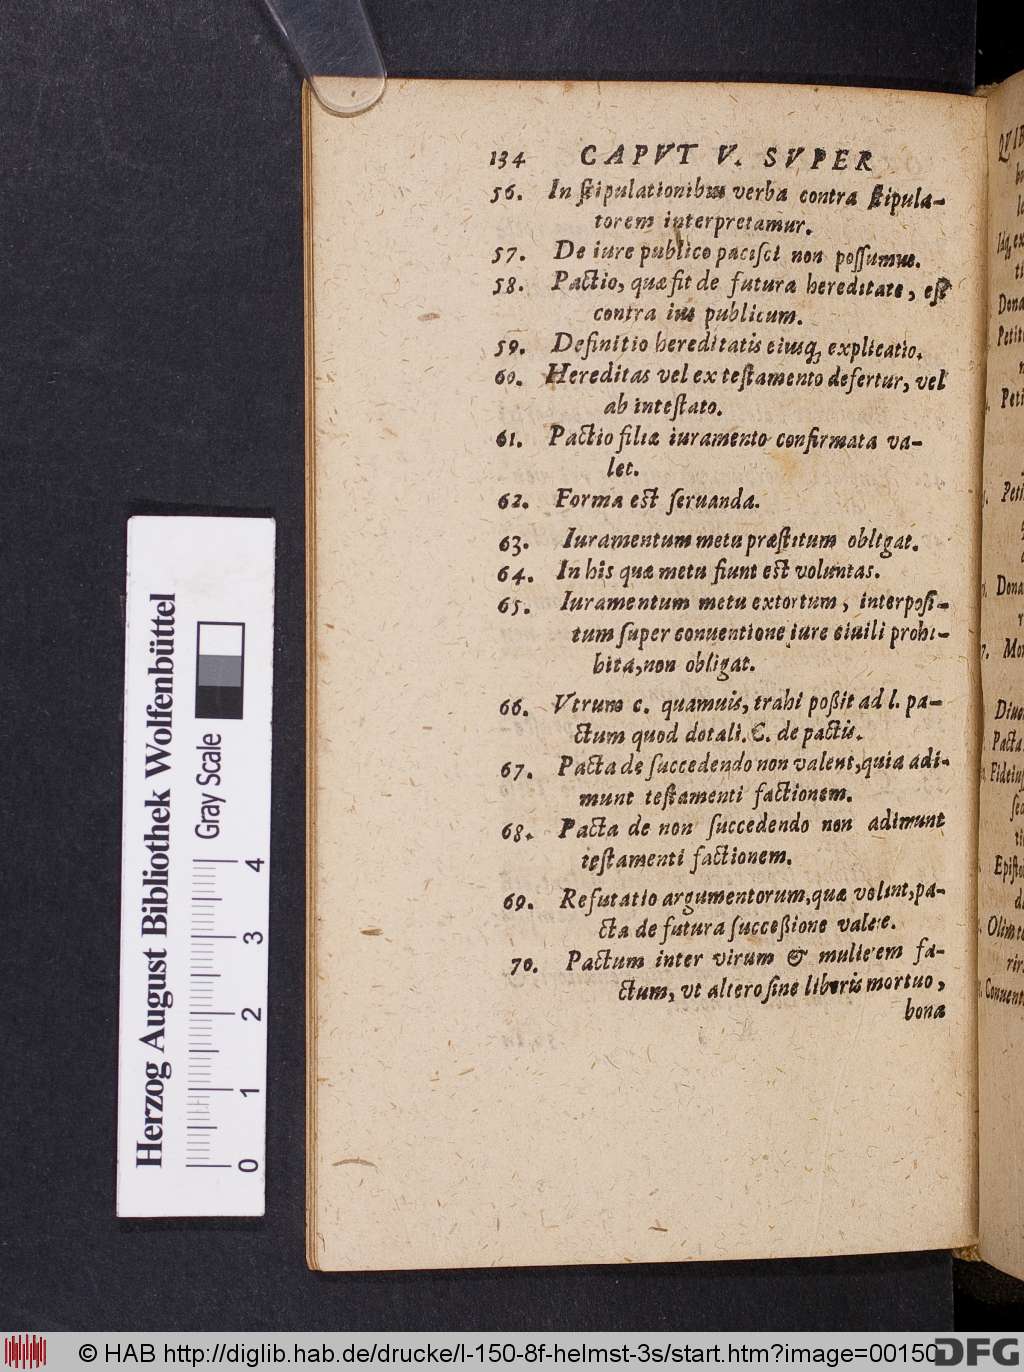 134 CAPVT V. SVPER
56. In stipulationibus verba contra stipula-
torem interpretamur.
57. De iure publico pacisci non possumus.
58. Pactio, quæ fit de futura hereditate, est
contra ius publicum.
59. Definitio hereditatis eiusq; explicatio.
60. Hereditas vel ex testamento defertur, vel
ab intestato.
61. Pactio filiæ iuramento confirmata va-
let.
62. Forma est seruanda.
63. Iuramentum metu præstitum obligat.
64. In his quæ metu fiunt est voluntas.
65. Iuramentum metu extortum, interposi-
tum super conuentione iure ciuili prohi-
bita, non obligat.
66. Vtrum c. quamuis, trahi poßit ad l. pa-
ctum quod dotali. C. de pactis.
67. Pacta de succedendo non valent, quia adi-
munt testamenti factionem.
68. Pacta de non succedendo non adimunt
testamenti factionem.
69. Refutatio argumentorum, quæ volunt, pa-
cta de futura succeßione valere.
70. Pactum inter virum & mulierem fa-
ctum, vt altero sine liberis mortuo,
bona
Dona
Petit
Peti
Peti
Dona
7. Mo
Pacta
Conuent
Herzog August Bibliothek Wolfenbüttel
Gray Scale
0 1 2 3 4
© HAB http://diglib.hab.de/drucke/l-150-8f-helmst-3s/start.htm?image=00150
DFG